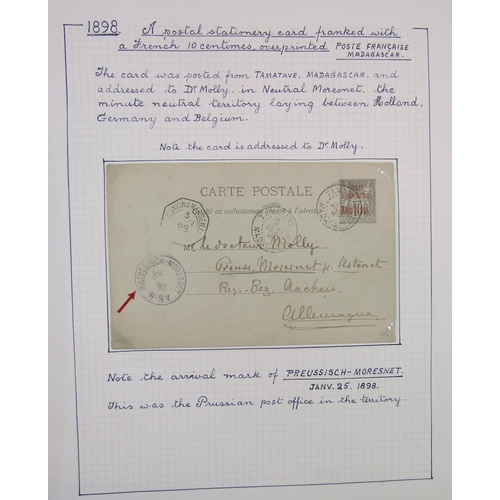 1898. A postal stationery card franked with
a French 10 centimes, overprinted POSTE FRANÇAISE
MADAGASCAR.
The card was posted from TAMATAVE, MADAGASCAR. and
addressed to Dr Molly. in Neutral Moresnet. the
minute neutral territory laying between Holland,
Germany and Belgium.
Note the card is addressed to Dr Molly.
CARTE POSTALE
est exclusivement à l'adresse
M le docteur Molly
Preuss. Moresnet Astenet
Reg. Bez. Aachen
Allemagne
PREUSSISCH-MORESNET
Note the arrival mark of PREUSSISCH-MORESNET.
JANV. 25. 1898.
This was the Prussian post office in the territory.